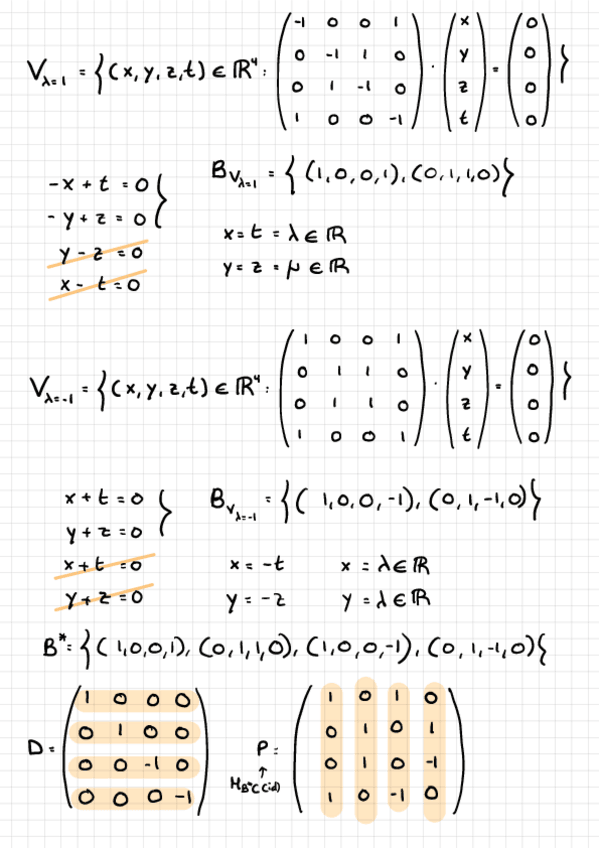 V_{λ=1} = { (x, y, z, t) ∈ ℝ⁴ : ( -1 0 0 1 ; 0 -1 1 0 ; 0 1 -1 0 ; 1 0 0 -1 ) · ( x ; y ; z ; t ) = ( 0 ; 0 ; 0 ; 0 ) }
-x + t = 0 }
- y + z = 0
y - z = 0
x - t = 0
B_{V_{λ=1}} = { (1, 0, 0, 1), (0, 1, 1, 0) }
x = t = λ ∈ ℝ
y = z = μ ∈ ℝ
V_{λ=-1} = { (x, y, z, t) ∈ ℝ⁴ : ( 1 0 0 1 ; 0 1 1 0 ; 0 1 1 0 ; 1 0 0 1 ) · ( x ; y ; z ; t ) = ( 0 ; 0 ; 0 ; 0 ) }
x + t = 0 }
y + z = 0
x + t = 0
y + z = 0
B_{V_{λ=-1}} = { ( 1, 0, 0, -1), (0, 1, -1, 0) }
x = -t x = λ ∈ ℝ
y = -z y = λ ∈ ℝ
B* = { ( 1, 0, 0, 1), (0, 1, 1, 0), (1, 0, 0, -1), (0, 1, -1, 0) {
D = ( 1 0 0 0 ; 0 1 0 0 ; 0 0 -1 0 ; 0 0 0 -1 )
P = ( 1 0 1 0 ; 0 1 0 1 ; 0 1 0 -1 ; 1 0 -1 0 )
↑
M_{B*C}(id)